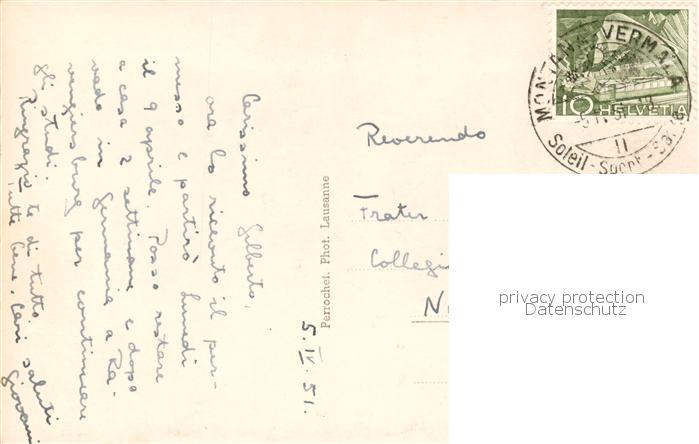 Carissimo Gilberto,
ora ho ricevuto il per-
messo e partirò Lunedì
il 9 aprile. Posso restare
a casa 2 settimane e dopo
vado in Germania a Ra-
vengiersburg per continuare
gli studi.
Ringrazio te di tutto
tutte bene. Cari saluti
Giovanni
5. IV. 51.
Perrochet. Phot. Lausanne
Reverendo
Frater
Collegi
N
MONTANA-VERMALA
Soleil - Sport - Sa
II
10 HELVETIA
privacy protection
Datenschutz